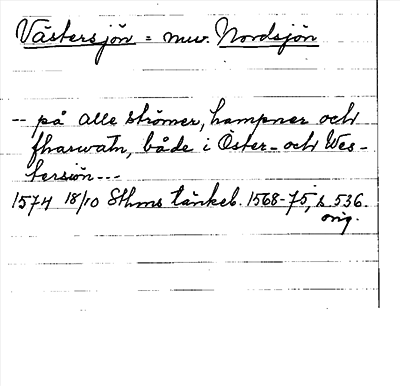 Västersjön = nuv. Nordsjön
-- på alle strömer, hampner och
fharwatn, både i Öster- och Wes-
tersiön---
1574 18/10 Sthms tänkeb. 1568-75, s. 536.
orig.